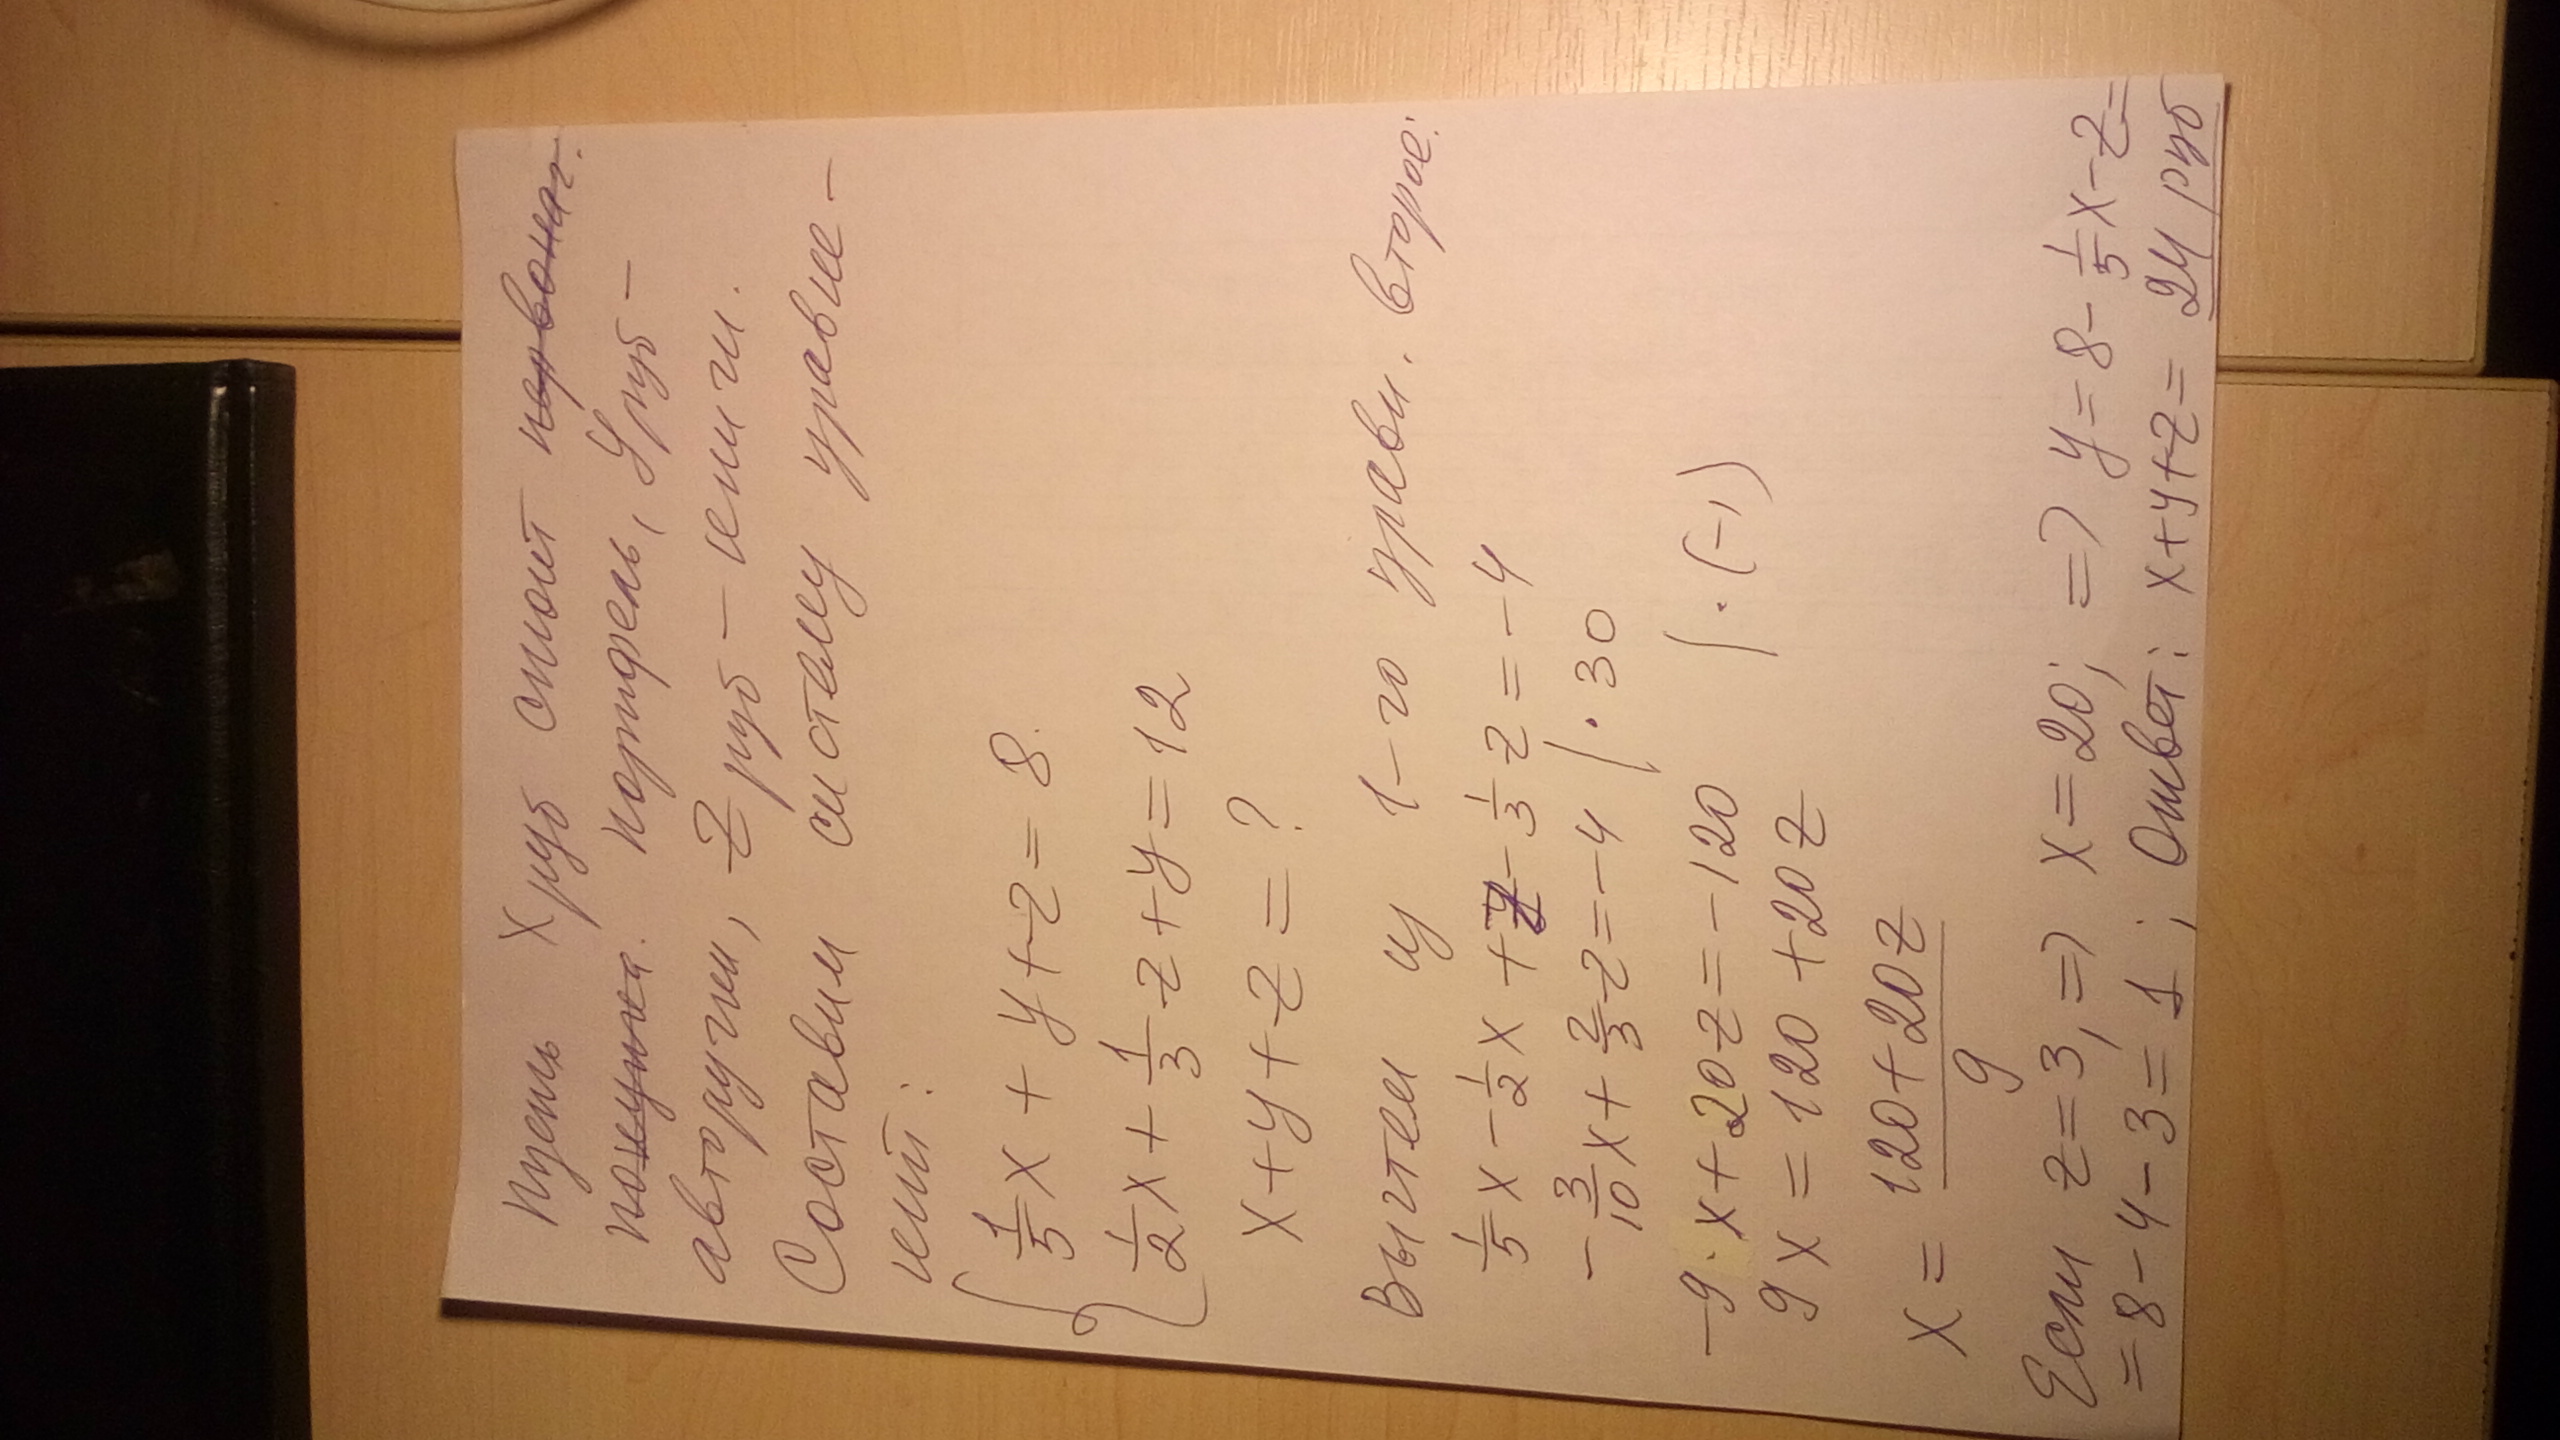 Пусть X руб стоит первонач.
покупка. портфель, y руб –
авторучки, z руб – книги.
Составим систему уравне-
ний:
1/5 x + y + z = 8.
1/2 x + 1/3 z + y = 12
x + y + z = ?
Вычтем из 1-го уравн. второе:
1/5 x – 1/2 x + z – 1/3 z = –4
– 3/10 x + 2/3 z = –4 | · 30
–9 · x + 20z = –120 | · (–1)
9x = 120 + 20z
x = (120 + 20z)/9
Если z = 3, => x = 20; => y = 8 – 1/5 x – z =
= 8 – 4 – 3 = 1; Ответ: x + y + z = 24 руб